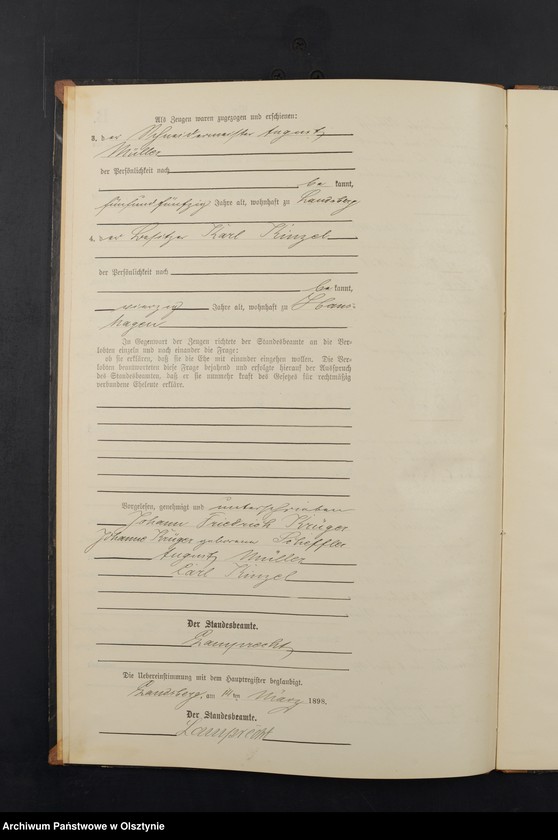 Als Zeugen waren zugezogen und erschienen:
3. der Schneidermeister August
Müller
der Persönlichkeit nach
be kannt,
fünfundfünfzig Jahre alt, wohnhaft zu Landsberg
4. der Besitzer Karl Kinzel
der Persönlichkeit nach
be kannt,
vierzig Jahre alt, wohnhaft zu Hans-
hagen
In Gegenwart der Zeugen richtete der Standesbeamte an die Ver-
lobten einzeln und nach einander die Frage:
ob sie erklären, daß sie die Ehe mit einander eingehen wollen. Die Ver-
lobten beantworteten diese Frage bejahend und erfolgte hierauf der Ausspruch
des Standesbeamten, daß er sie nunmehr kraft des Gesetzes für rechtmäßig
verbundene Eheleute erkläre.
Vorgelesen, genehmigt und unterschrieben
Johann Friedrich Krüger
Johanne Krüger geborene Scheffler
August Müller
Karl Kinzel
Der Standesbeamte.
Lamprecht
Die Uebereinstimmung mit dem Hauptregister beglaubigt.
Landsberg, am ten März 1898.
Der Standesbeamte.
Lamprecht
Archiwum Państwowe w Olsztynie